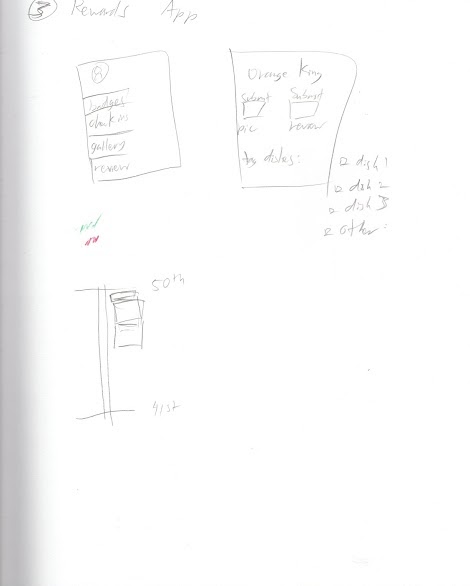 ③ Rewards App
badges
check ins
gallery
review
Orange King
Submit Submit
pic review
top dishes:
dish 1
dish 2
dish 3
other:
red
50th
41st